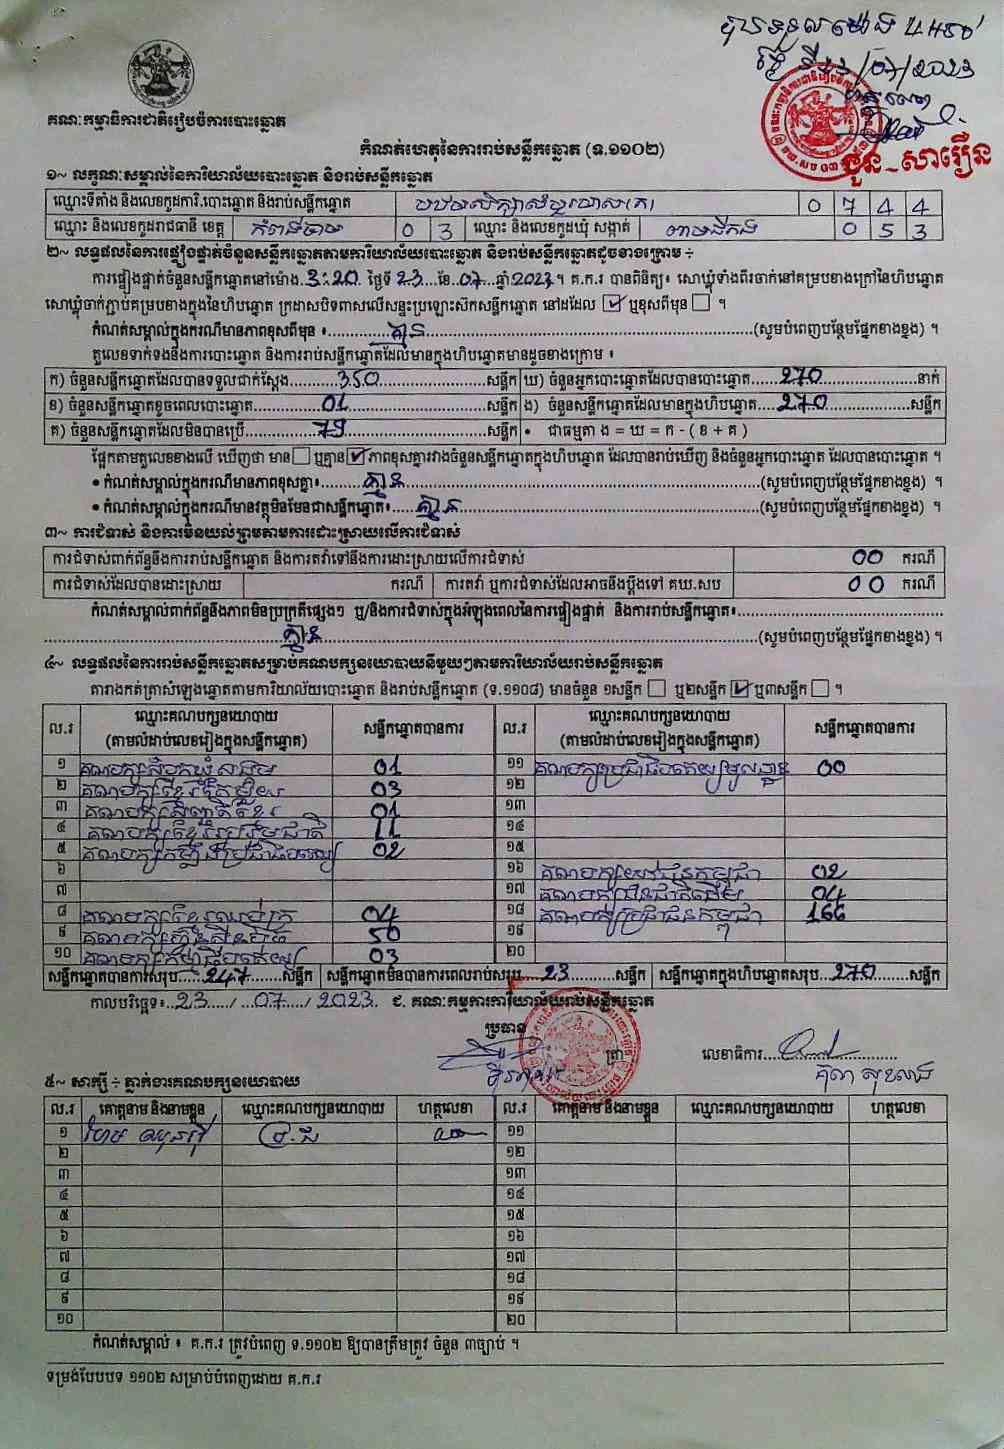 គណៈកម្មាធិការជាតិរៀបចំការបោះឆ្នោត
ជួន-សារឿន
កំណត់ហេតុនៃការរាប់សន្លឹកឆ្នោត (ទ.១១០២)
១~ លក្ខណៈសម្គាល់នៃការិយាល័យបោះឆ្នោត និងរាប់សន្លឹកឆ្នោត
ឈ្មោះទីតាំង និងលេខកូដការិ.បោះឆ្នោត និងរាប់សន្លឹកឆ្នោត 0 7 4 4
ឈ្មោះ និងលេខកូដរាជធានី ខេត្ត កំពង់ចាម 0 3 ឈ្មោះ និងលេខកូដឃុំ សង្កាត់ 0 5 3
២~ លទ្ធផលនៃការផ្ទៀងផ្ទាត់ចំនួនសន្លឹកឆ្នោតតាមការិយាល័យបោះឆ្នោត និងរាប់សន្លឹកឆ្នោតដូចខាងក្រោម ÷
ការផ្ទៀងផ្ទាត់ចំនួនសន្លឹកឆ្នោតនៅម៉ោង 3:20 ថ្ងៃទី 23 ខែ 07 ឆ្នាំ 2023 ។ គ.ក.រ បានពិនិត្យ៖ សោឃ្លុំទាំងពីរចាក់នៅគម្របខាងក្រៅនៃហិបឆ្នោត
សោឃ្លុំចាក់ភ្ជាប់គម្របខាងក្នុងនៃហិបឆ្នោត ក្រដាសបិទពាសលើសន្ទះប្រឡោះស៊កសន្លឹកឆ្នោត នៅដដែល ☑ ឬខុសពីមុន ☐ ។
កំណត់សម្គាល់ក្នុងករណីមានភាពខុសពីមុន ៖ គ្មាន (សូមបំពេញបន្ថែមផ្នែកខាងខ្នង) ។
តួលេខទាក់ទងនឹងការបោះឆ្នោត និងការរាប់សន្លឹកឆ្នោតដែលមានក្នុងហិបឆ្នោតមានដូចខាងក្រោម ៖
ក) ចំនួនសន្លឹកឆ្នោតដែលបានទទួលជាក់ស្តែង 350 សន្លឹក ឃ) ចំនួនអ្នកបោះឆ្នោតដែលបានបោះឆ្នោត 270 នាក់
ខ) ចំនួនសន្លឹកឆ្នោតខូចពេលបោះឆ្នោត 01 សន្លឹក ង) ចំនួនសន្លឹកឆ្នោតដែលមានក្នុងហិបឆ្នោត 270 សន្លឹក
គ) ចំនួនសន្លឹកឆ្នោតដែលមិនបានប្រើ 79 សន្លឹក • ជាធម្មតា ង = ឃ = ក - ( ខ + គ )
ផ្អែកតាមតួលេខខាងលើ ឃើញថា មាន ☐ ឬគ្មាន ☑ ភាពខុសគ្នារវាងចំនួនសន្លឹកឆ្នោតក្នុងហិបឆ្នោត ដែលបានរាប់ឃើញ និងចំនួនអ្នកបោះឆ្នោត ដែលបានបោះឆ្នោត ។
• កំណត់សម្គាល់ក្នុងករណីមានភាពខុសគ្នា៖ គ្មាន (សូមបំពេញបន្ថែមផ្នែកខាងខ្នង) ។
• កំណត់សម្គាល់ក្នុងករណីមានវត្ថុមិនមែនជាសន្លឹកឆ្នោត៖ គ្មាន (សូមបំពេញបន្ថែមផ្នែកខាងខ្នង) ។
៣~ ការជំទាស់ និងការមិនយល់ព្រមតាមការដោះស្រាយលើការជំទាស់
ការជំទាស់ពាក់ព័ន្ធនឹងការរាប់សន្លឹកឆ្នោត និងការតវ៉ាទៅនឹងការដោះស្រាយលើការជំទាស់ 00 ករណី
ការជំទាស់ដែលបានដោះស្រាយ ករណី ការតវ៉ា ឬការជំទាស់ដែលអាចនឹងប្តឹងទៅ គឃ.សប 00 ករណី
កំណត់សម្គាល់ពាក់ព័ន្ធនឹងភាពមិនប្រក្រតីផ្សេងៗ ឬ/និងការជំទាស់ក្នុងអំឡុងពេលនៃការផ្ទៀងផ្ទាត់ និងការរាប់សន្លឹកឆ្នោត៖
គ្មាន (សូមបំពេញបន្ថែមផ្នែកខាងខ្នង) ។
៤~ លទ្ធផលនៃការរាប់សន្លឹកឆ្នោតសម្រាប់គណបក្សនយោបាយនីមួយៗតាមការិយាល័យរាប់សន្លឹកឆ្នោត
តារាងកត់ត្រាសំឡេងឆ្នោតតាមការិយាល័យបោះឆ្នោត និងរាប់សន្លឹកឆ្នោត (ទ.១១០៨) មានចំនួន ១សន្លឹក ☐ ឬ២សន្លឹក ☑ ឬ៣សន្លឹក ☐ ។
ល.រ ឈ្មោះគណបក្សនយោបាយ (តាមលំដាប់លេខរៀងក្នុងសន្លឹកឆ្នោត) សន្លឹកឆ្នោតបានការ ល.រ ឈ្មោះគណបក្សនយោបាយ (តាមលំដាប់លេខរៀងក្នុងសន្លឹកឆ្នោត) សន្លឹកឆ្នោតបានការ
១ គណបក្សសំបុកឃ្មុំសង្គម 01 ១១ គណបក្សប្រជាធិបតេយ្យមូលដ្ឋាន 00
២ គណបក្សខ្មែរតែមួយ 03 ១២
៣ គណបក្សសញ្ជាតិខ្មែរ 01 ១៣
៤ គណបក្សខ្មែររួបរួមជាតិ 11 ១៤
៥ គណបក្សកម្លាំងប្រជាធិបតេយ្យ 02 ១៥
៦ ១៦ គណបក្សយុវជនកម្ពុជា 02
៧ ១៧ គណបក្សជនជាតិដើម 04
៨ គណបក្សខ្មែរឈប់ក្រ 04 ១៨ គណបក្សប្រជាជនកម្ពុជា 166
៩ គណបក្សហ្វ៊ុនស៊ិនប៉ិច 50 ១៩
១០ គណបក្សកម្មាធិបតេយ្យ 03 ២០
សន្លឹកឆ្នោតបានការសរុប 247 សន្លឹក សន្លឹកឆ្នោតមិនបានការពេលរាប់សរុប 23 សន្លឹក សន្លឹកឆ្នោតក្នុងហិបឆ្នោតសរុប 270 សន្លឹក
កាលបរិច្ឆេទ៖ 23 / 07 / 2023 ជ. គណៈកម្មការការិយាល័យរាប់សន្លឹកឆ្នោត
ប្រធាន
ត្រា លេខាធិការ
៥~ សាក្សី ÷ ភ្នាក់ងារគណបក្សនយោបាយ
ល.រ គោត្តនាម និងនាមខ្លួន ឈ្មោះគណបក្សនយោបាយ ហត្ថលេខា ល.រ គោត្តនាម និងនាមខ្លួន ឈ្មោះគណបក្សនយោបាយ ហត្ថលេខា
១ ប្រ.ជ ១១
២ ១២
៣ ១៣
៤ ១៤
៥ ១៥
៦ ១៦
៧ ១៧
៨ ១៨
៩ ១៩
១០ ២០
កំណត់សម្គាល់ ៖ គ.ក.រ ត្រូវបំពេញ ទ.១១០២ ឱ្យបានត្រឹមត្រូវ ចំនួន ៣ច្បាប់ ។
ទម្រង់បែបបទ ១១០២ សម្រាប់បំពេញដោយ គ.ក.រ